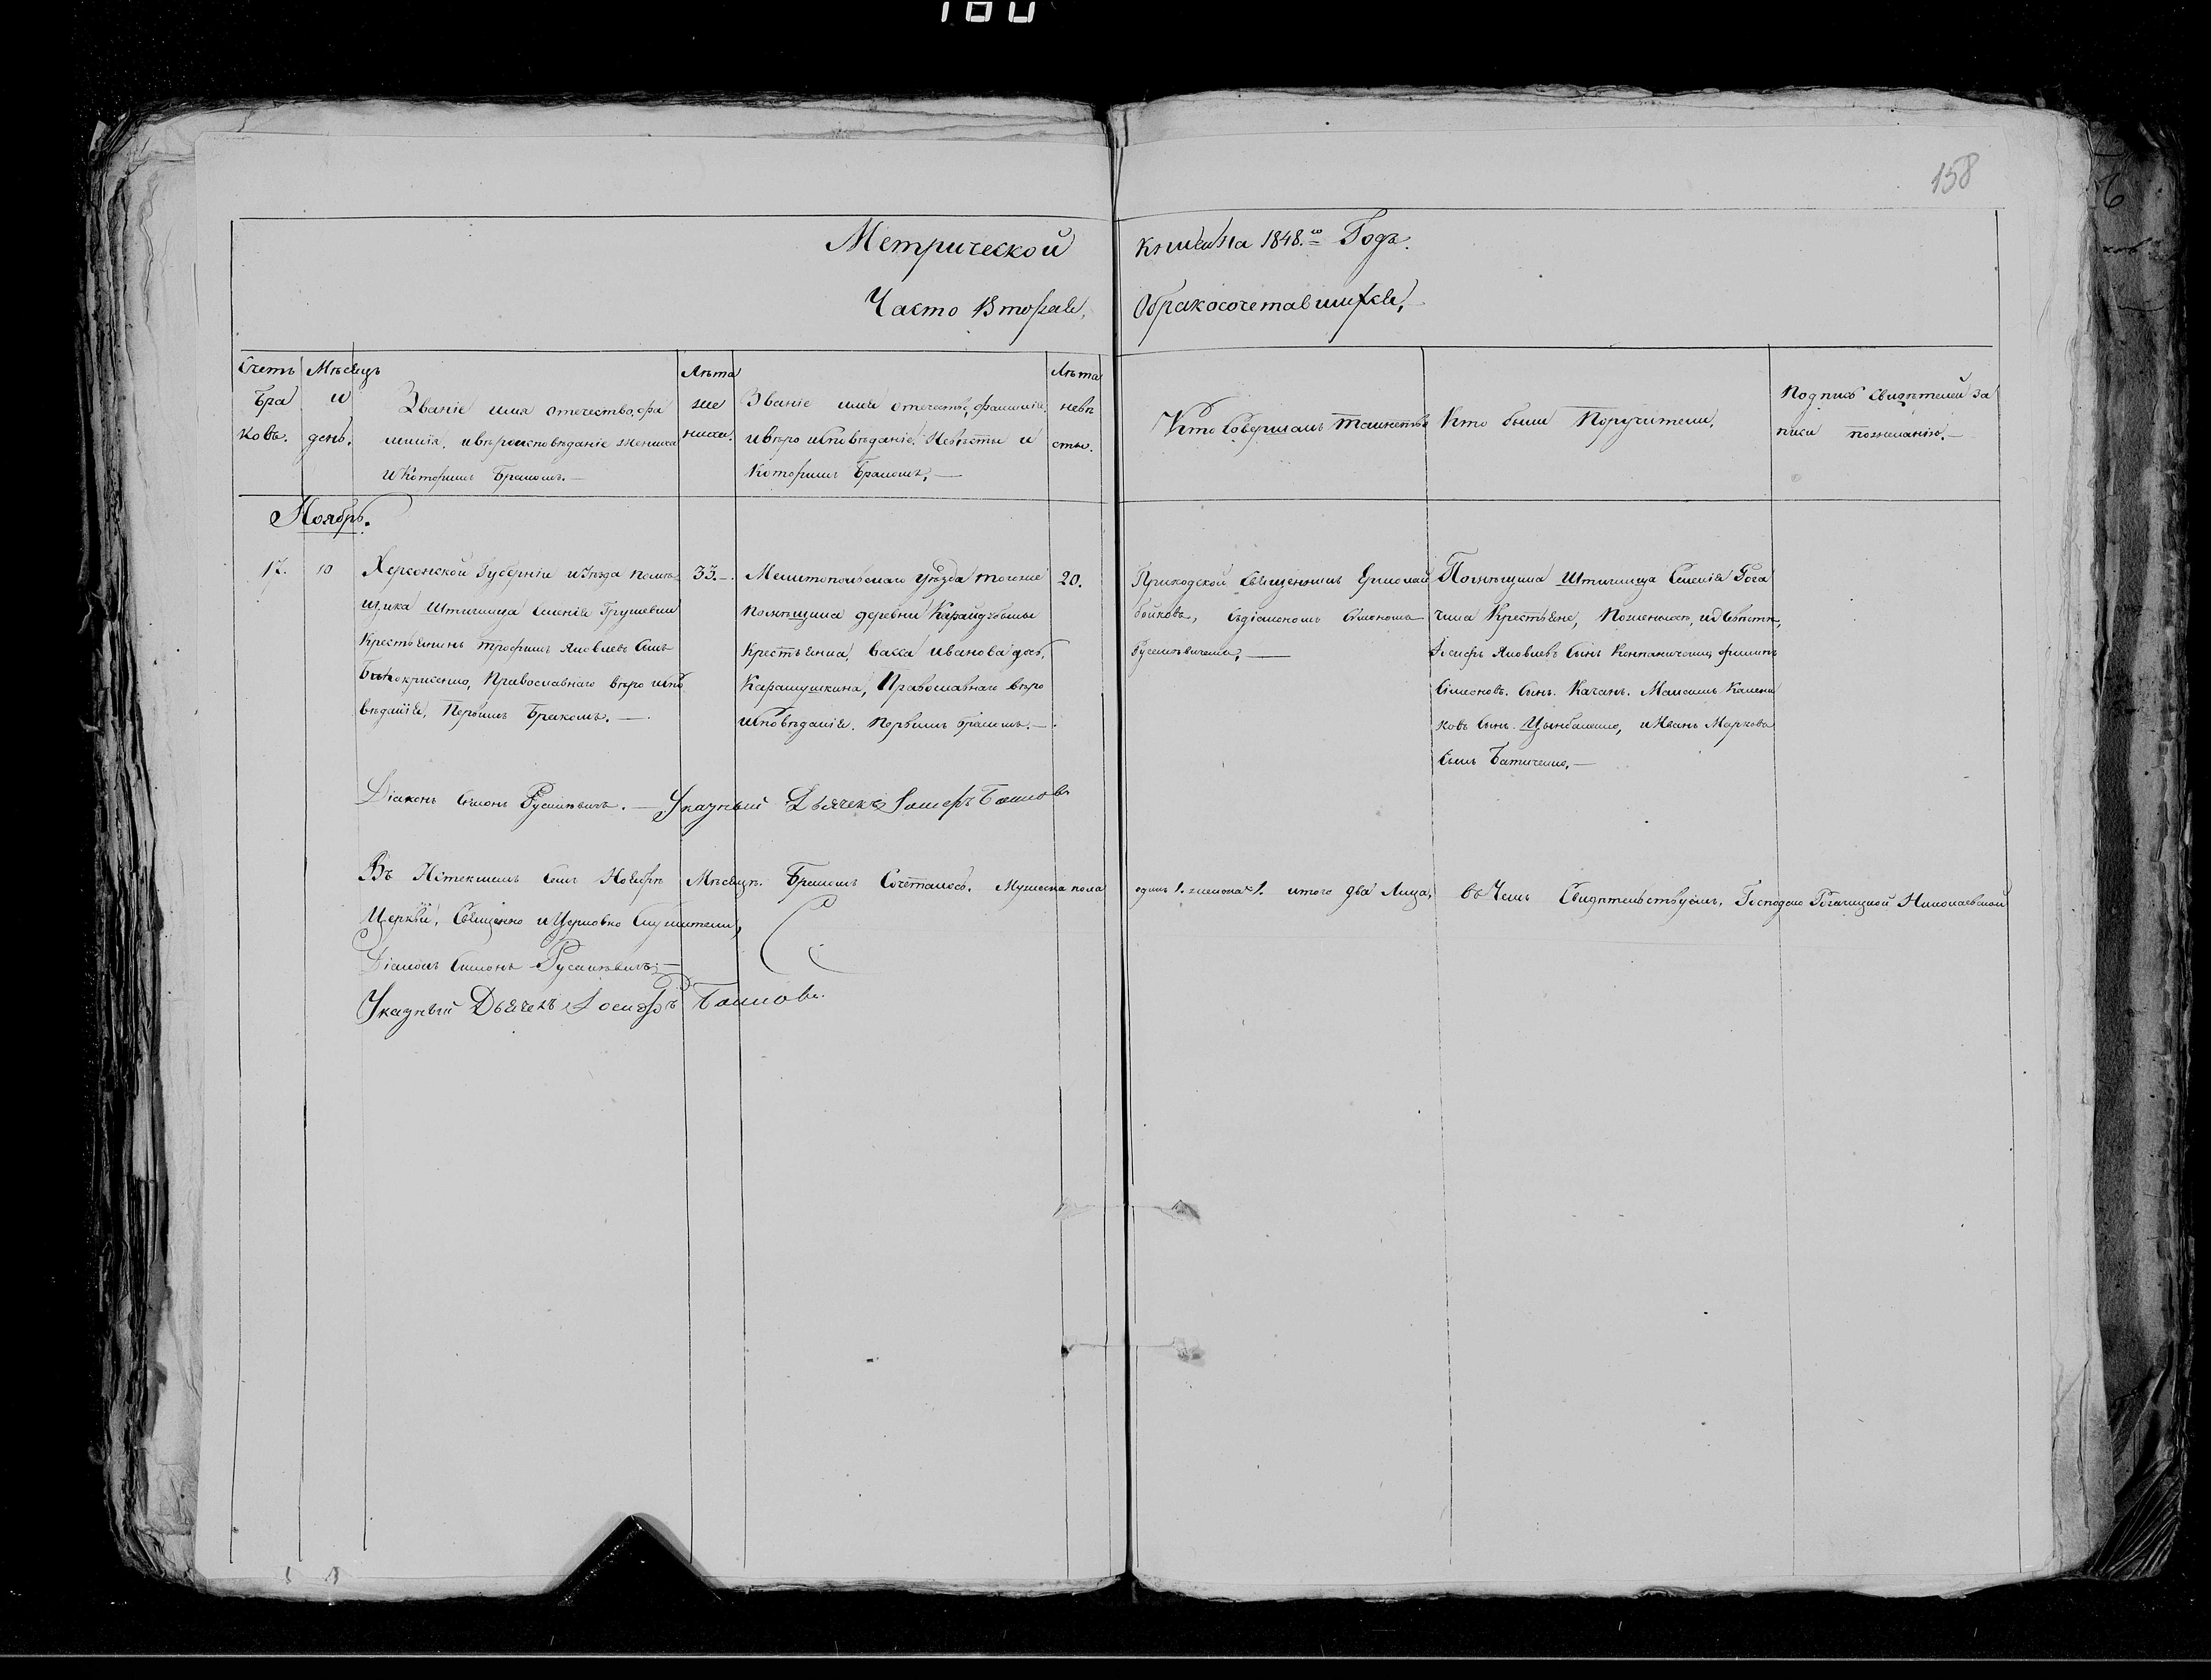 180
158
Метрической книги на 1848.ю Годъ.
Часть Вторая, О бракосочетавшихся,
Счетъ Бра ковъ.
Мѣсяцъ и день.
Званіе имя отечество, фа
милія, и вѣроисповѣданіе жениха
и Которымъ Бракомъ.—
Лѣта же ниха.
Званіе имя отечество, фамилія,
и вѣро исповѣданіе, Невѣсты и
Которымъ Бракомъ,—
Лѣта невѣ сты.
Кто Совершалъ Таинство
Кто были Поручители,
Подпись Свидѣтелей за
писи по желанію.—
Ноябрь.
17.
10
Херсонской Губерніи и Уѣзда помѣ
щика Штиглица Имѣнія Грушевки
Крестьянинъ Трофимъ Яковлевъ Сынъ
Православнаго вѣро испо
вѣданія, Первымъ Бракомъ.—
33.—
Мелитопольскаго Уѣзда тогоже
Помѣщика деревни Карайдубины
Крестьянка, Васса Иванова дочь,
Карапушкина, Православнаго вѣро
исповѣданія. Первымъ Бракомъ.—
20.
Приходской Священникъ Ермолай
Бойковъ, съ діакономъ Симономъ
Русаневичемъ,—
Помѣщика Штиглица Имѣнія Рога
чика Крестьяне, По женихѣ, и Невѣстѣ,
Іосифъ Яковлевъ Сынъ Филипъ
Симоновъ. Сынъ. Качанъ.
ковъ Сынъ. Цымбаленко, и Иванъ Марковъ
Сынъ Батиченко,—
Діаконъ Симонъ Русаневичъ.— Указный Дьячекъ Іосифъ Баиловъ
Въ Истекшемъ Семъ Ноябрѣ Мѣсяцѣ. Бракомъ Сочеталось. Мужеска пола одинъ 1. женска 1. итого два Лица, въ Чемъ Свидѣтельствуемъ, Господско Рогачицкой Николаевской
Церкви, Священно и Церковно Служители,
Діаконъ Симонъ Русаневичъ;—
Указный Дьячекъ Іосифъ Баиловъ.